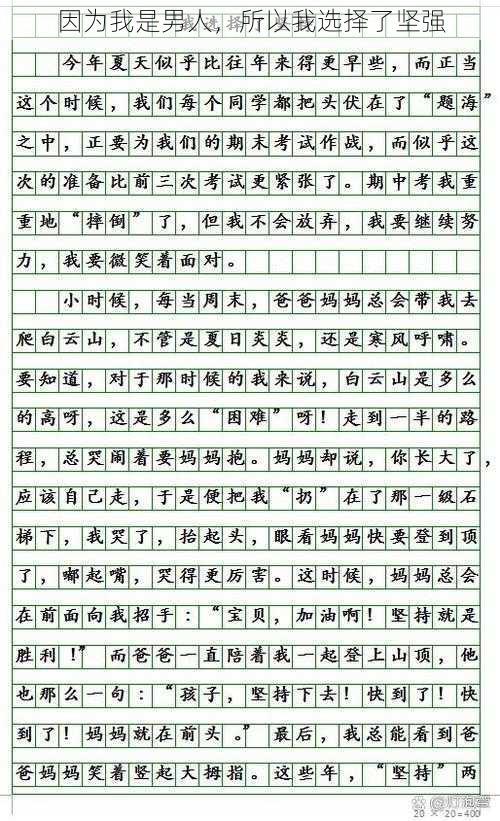 因为我是男人，所以我选择了坚强
今年夏天似乎比往年来得更早些，而正当
这个时候，我们每个同学都把头伏在了“题海”
之中，正要为我们的期末考试作战，而似乎这
次的准备比前三次考试更紧张了。期中考我重
重地“摔倒”了，但我不会放弃，我要继续努
力，我要微笑着面对。
小时候，每当周末，爸爸妈妈总会带我去
爬白云山，不管是夏日炎炎，还是寒风呼啸。
要知道，对于那时候的我来说，白云山是多么
的高呀，这是多么“困难”呀！走到一半的路
程，总哭闹着要妈妈抱。妈妈却说，你长大了，
应该自己走，于是便把我“扔”在了那一级石
梯下，我哭了，抬起头，眼看妈妈快要登到顶
了，嘟起嘴，哭得更厉害。这时候，妈妈总会
在前面向我招手：“宝贝，加油啊！坚持就是
胜利！”而爸爸一直陪着我一起登上山顶，他
也那么一句：“孩子，坚持下去！快到了！快
到了！妈妈就在前头。”最后，我总能看到爸
爸妈妈笑着竖起大拇指。这些年，“坚持”两
20 × 20＝400